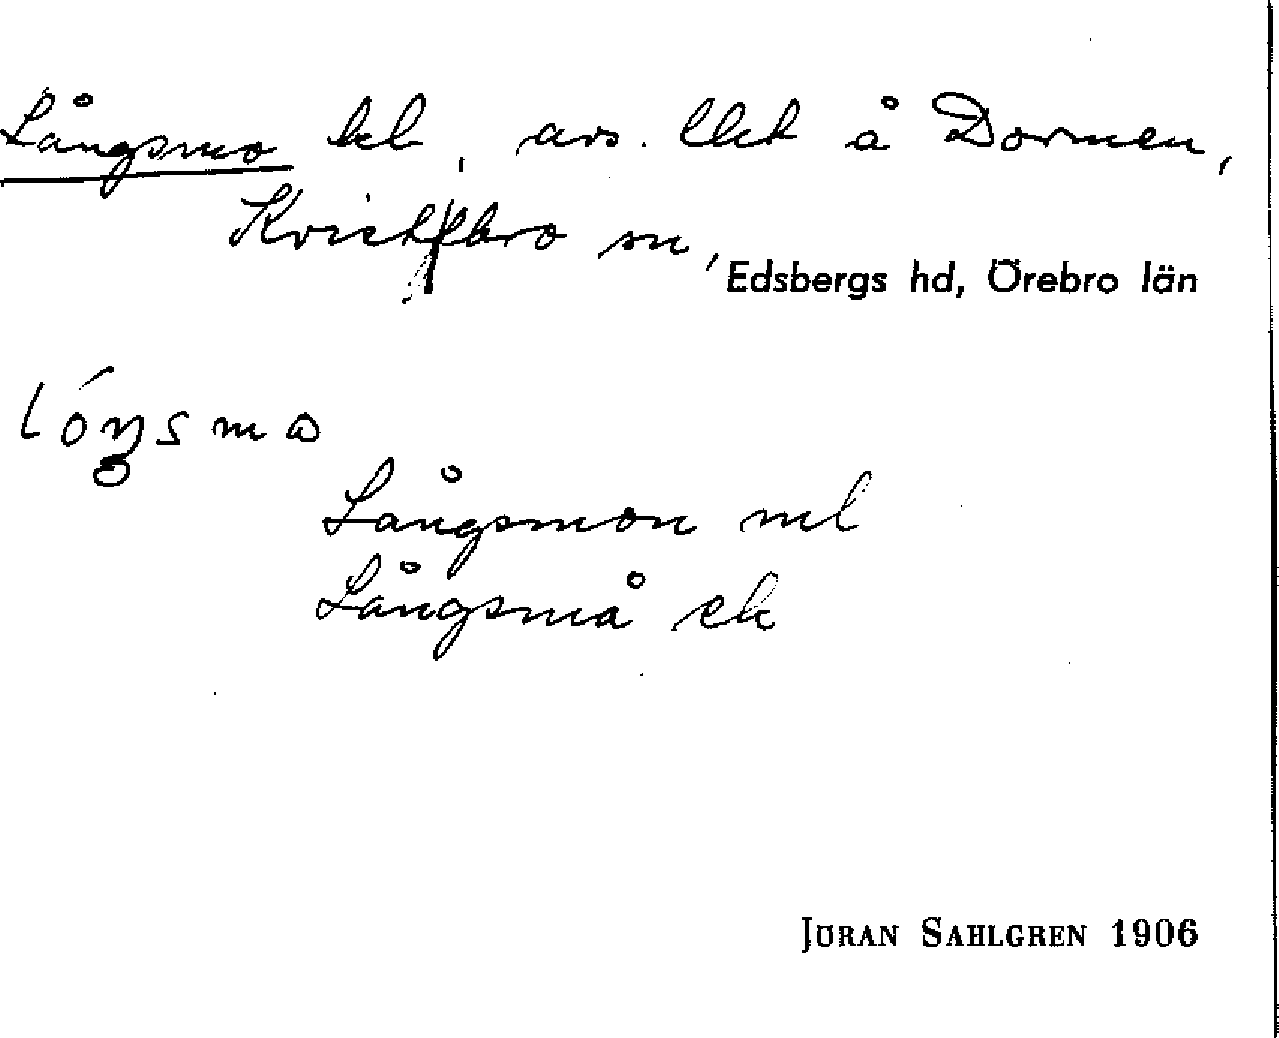 Långsmo hl, avs. lht å Dormen,
Kvistbro sn,
Edsbergs hd, Örebro län
lóŋsmɷ
Långsmon ml
Långsmå ek
JÖRAN SAHLGREN 1906